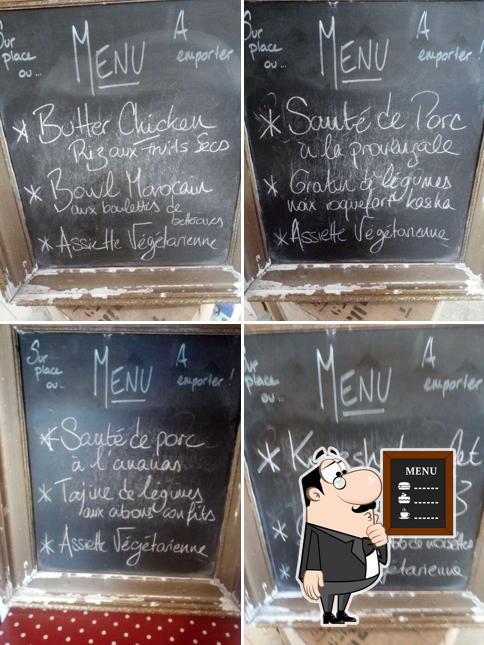 Sur
place
ou...
MENU
A
emporter
* Butter Chicken
Riz aux fruits Secs
* Bowl Marocain
aux boulettes de
betteraves
* Assiette Végétarienne
Sur
place
ou...
MENU
A
emporter !
* Sauté de Porc
à la provençale
* Gratin de légumes
noix roquefort kasha
* Assiette Végétarienne
Sur
place
ou...
MENU
A
emporter !
* Sauté de porc
à l'ananas
* Tajine de légumes
aux citrons confits
* Assiette Végétarienne
Sur
place
ou...
MENU
A
emporter
*
MENU
de noisettes
*
*